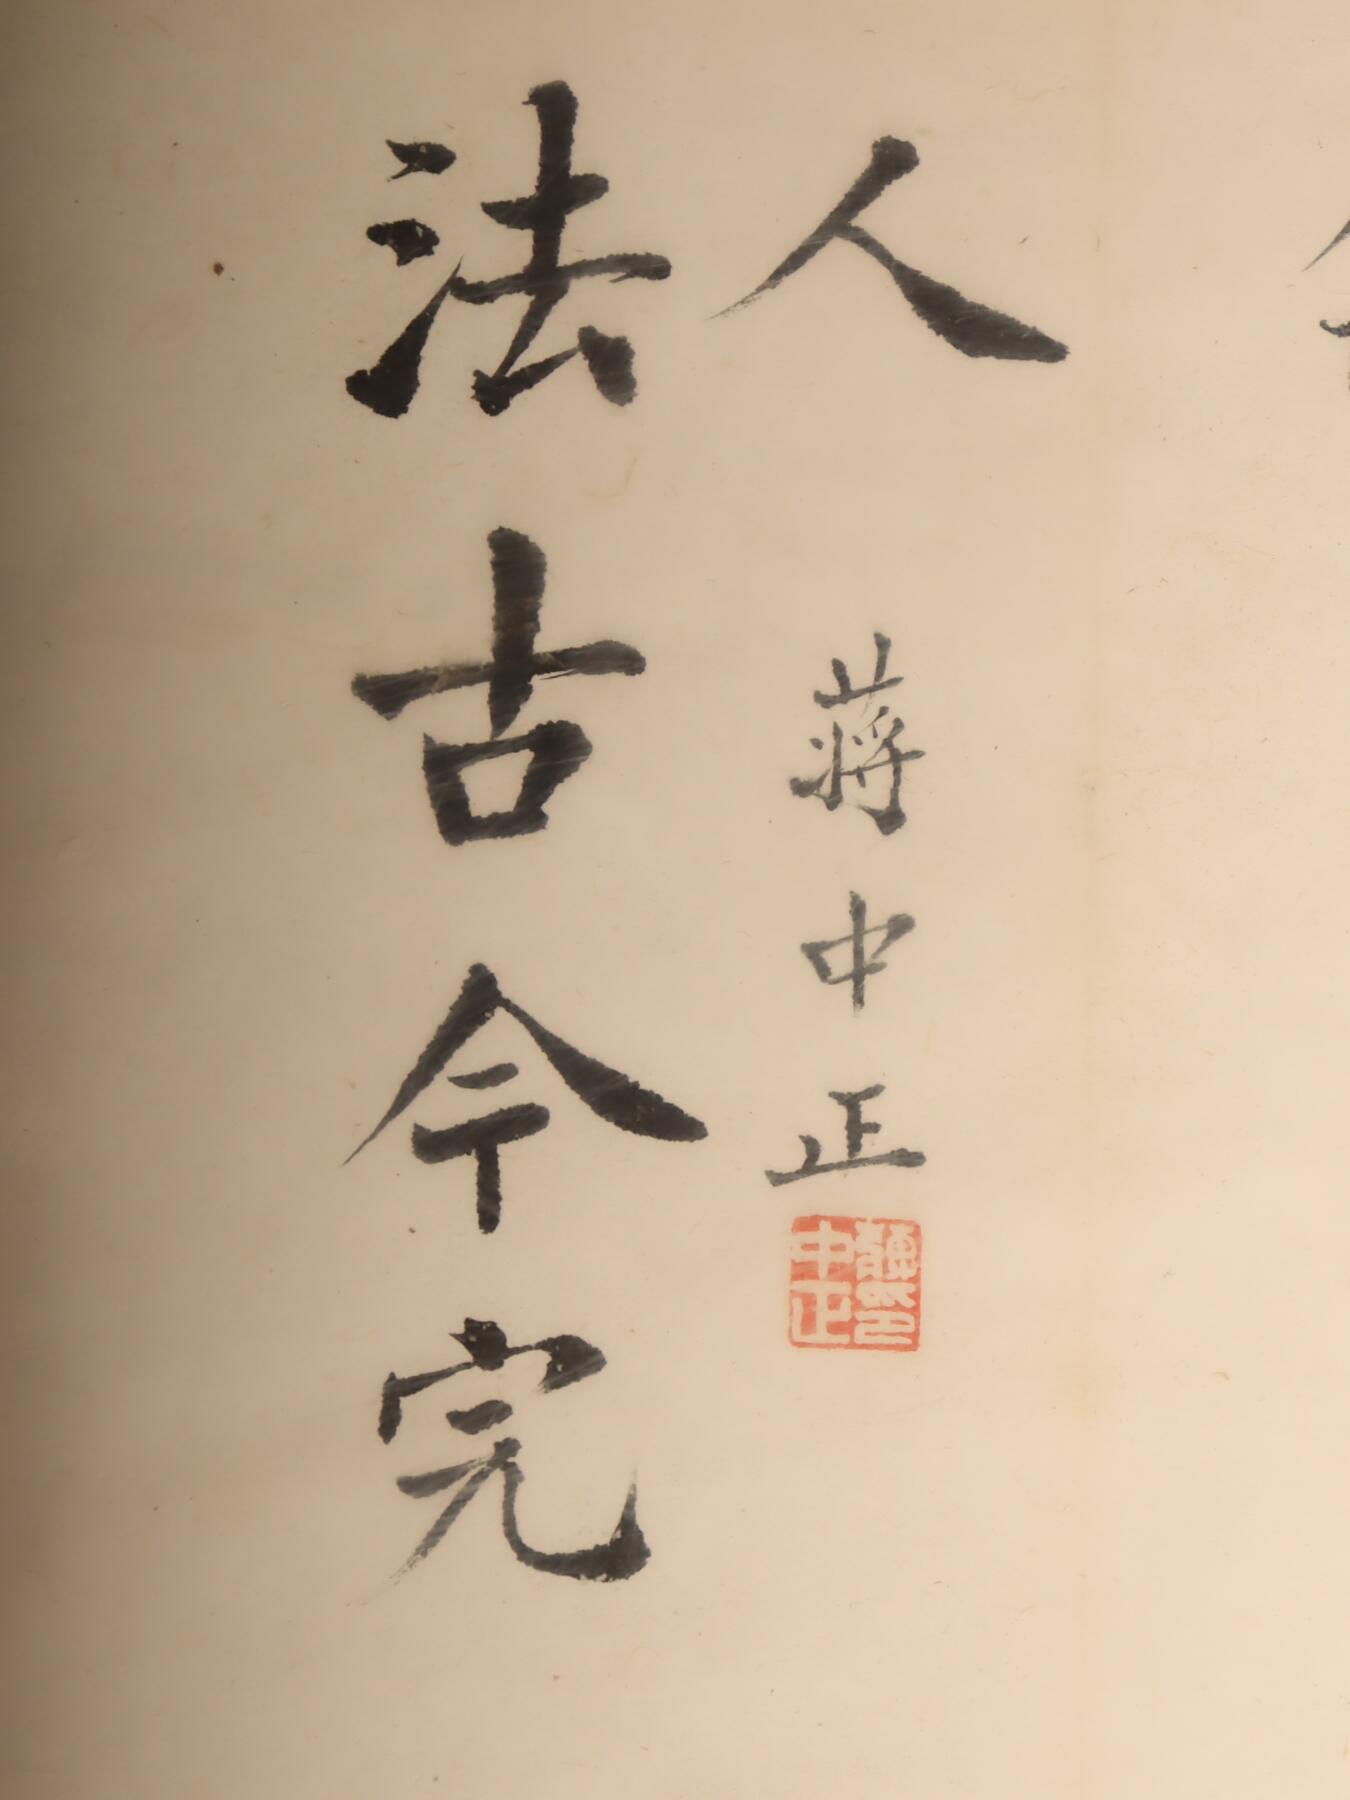 法古今完
人
蔣中正
蔣印
中正